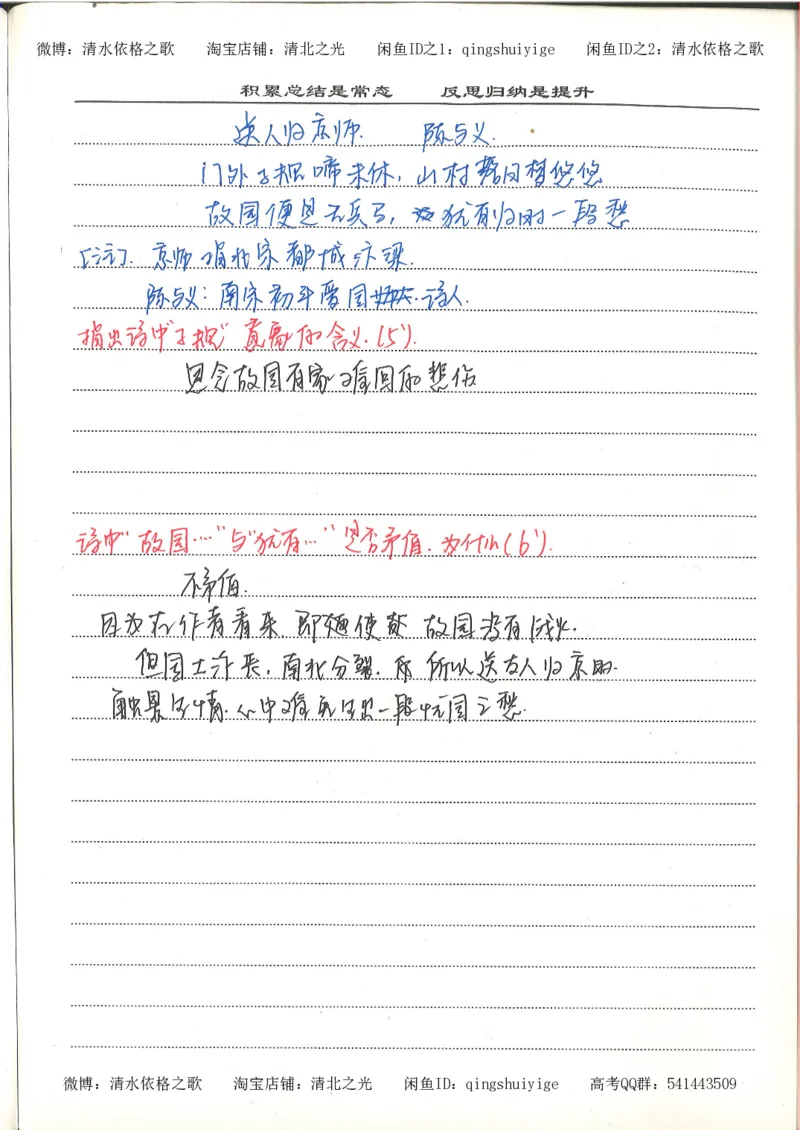 微博：清水依格之歌 淘宝店铺：清北之光 闲鱼ID之1：qingshuiyige 闲鱼ID之2：清水依格之歌
积累总结是常态 反思归纳是提升
送人归京师. 陈与义.
门外子规啼未休，山村落日梦悠悠
故国便是无兵马，犹有归时一段愁
[注]. 京师 指北宋都城汴梁.
陈与义：南宋初年爱国诗人.
指出诗中"子规"意象的含义.(5').
思念故国有家难回的悲伤
诗中"故国…"与"犹有…"是否矛盾.为什么(6').
不矛盾.
因为在作者看来 即便使 故园没有战火.
但国土沦丧，南北分裂. 所以送友人归京时.
触景生情.心中难免生出一段忧国之愁.
微博：清水依格之歌 淘宝店铺：清北之光 闲鱼ID：qingshuiyige 高考QQ群：541443509